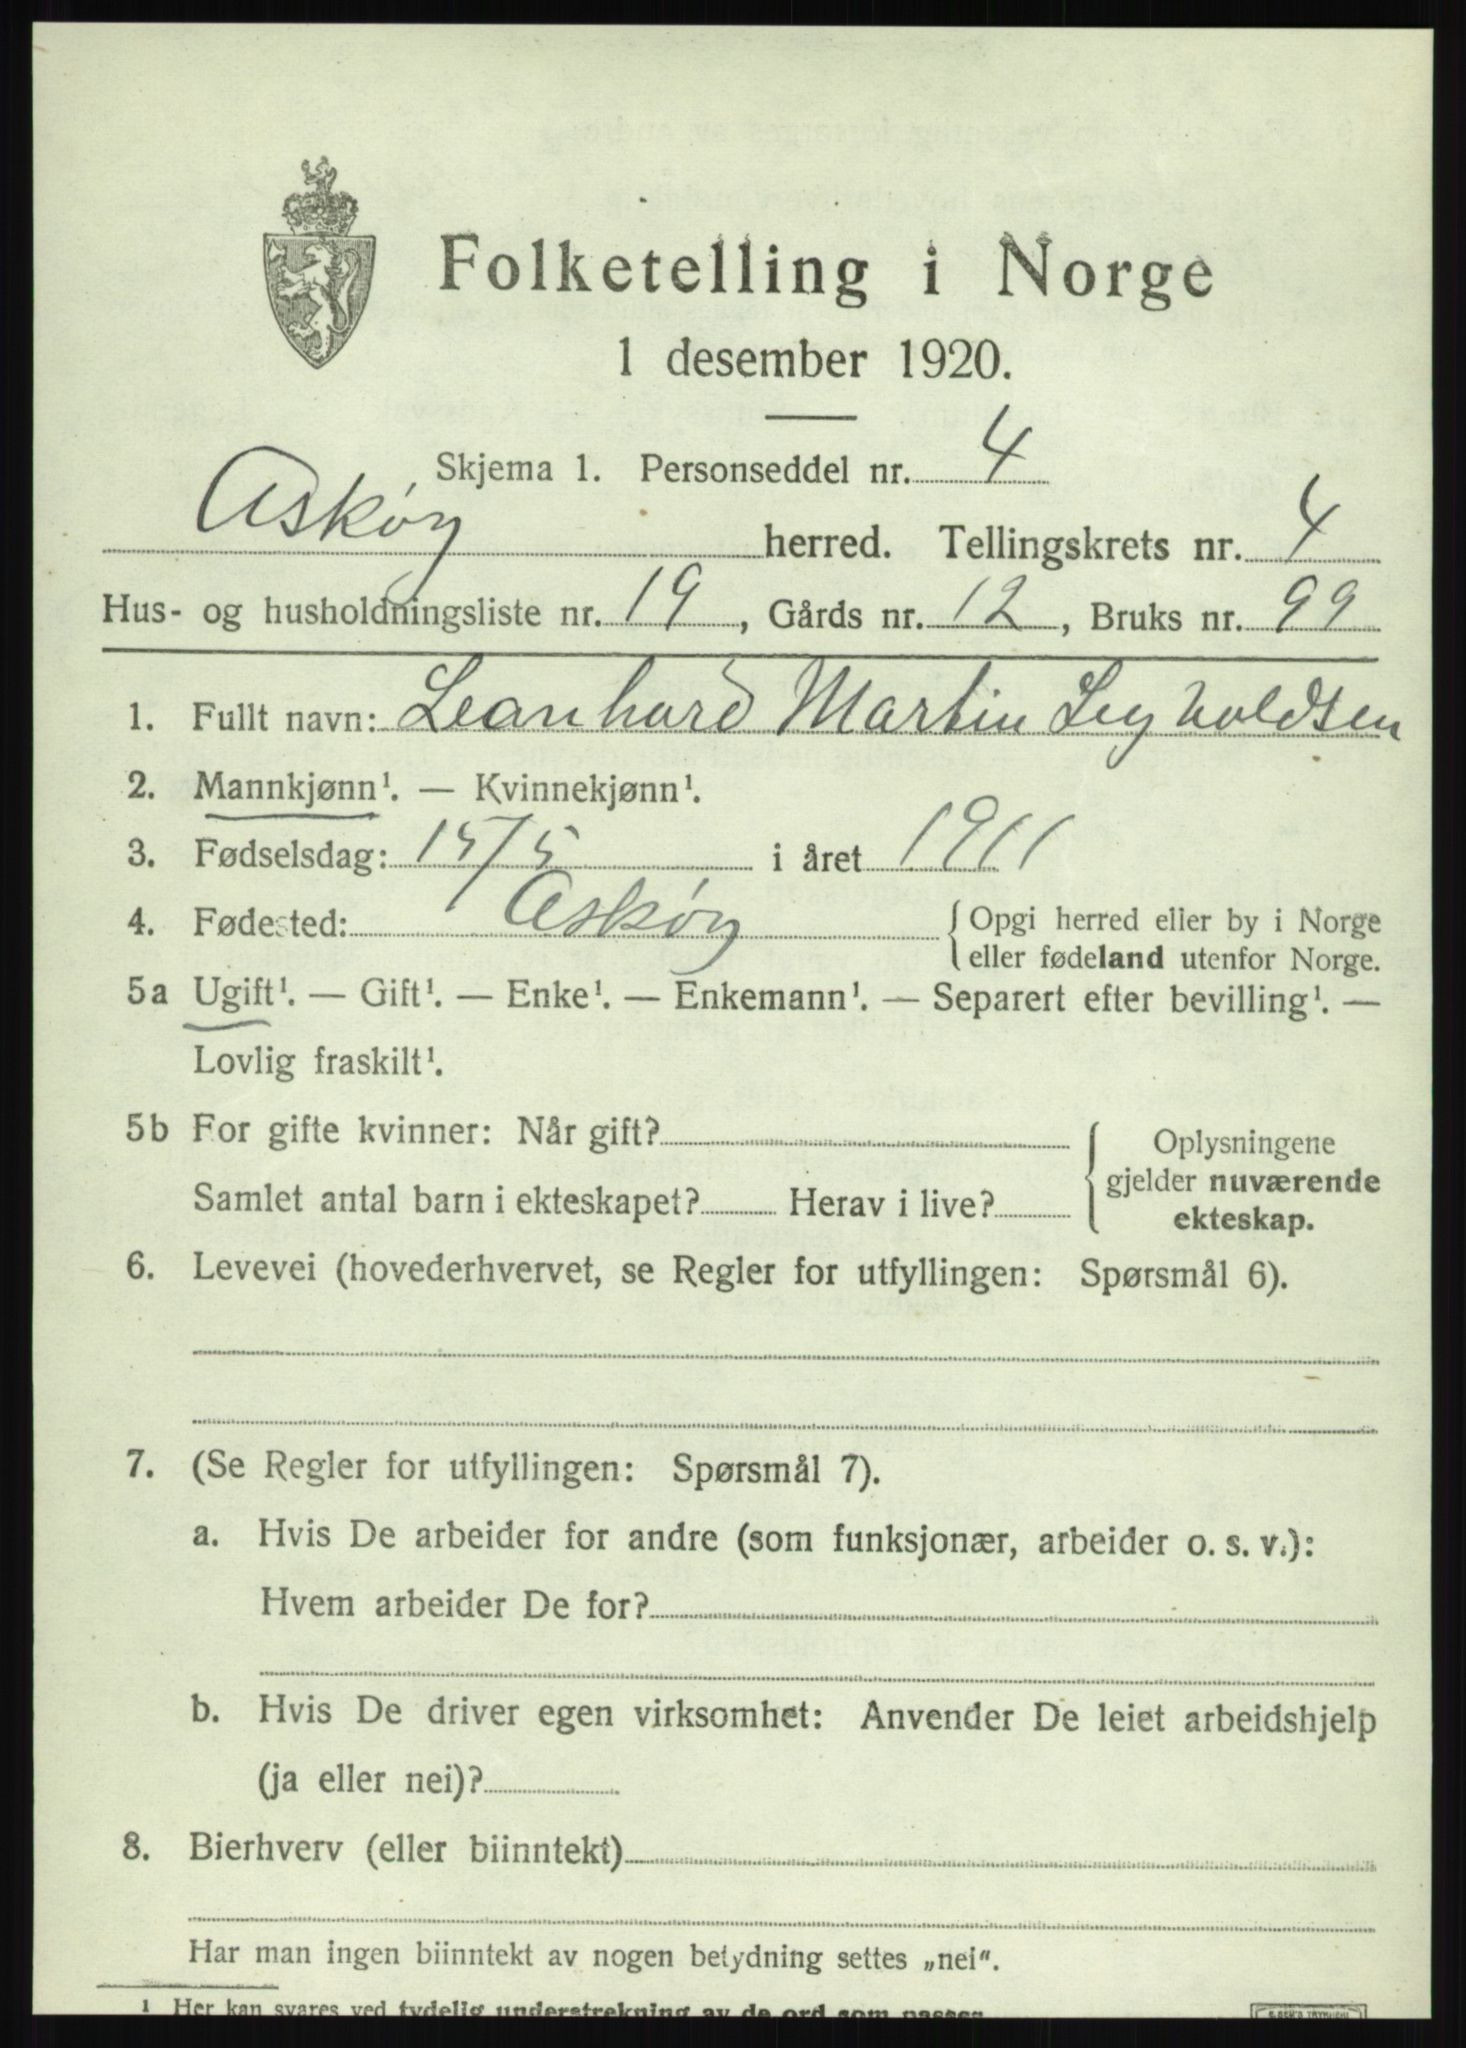 Folketelling i Norge
1 desember 1920.
Skjema 1. Personseddel nr. 4
Askøy herred. Tellingskrets nr. 4
Hus- og husholdningsliste nr. 19, Gårds nr. 12, Bruks nr. 99
1. Fullt navn: Leanhard Martin
2. Mannkjønn¹. — Kvinnekjønn¹.
3. Fødselsdag: 15/5 i året 1911
4. Fødested: Askøy { Opgi herred eller by i Norge
eller fødeland utenfor Norge.
5a Ugift¹. — Gift¹. — Enke¹. — Enkemann¹. — Separert efter bevilling¹. —
Lovlig fraskilt¹.
5b For gifte kvinner: Når gift?
Samlet antal barn i ekteskapet? Herav i live?
{ Oplysningene
gjelder nuværende
ekteskap.
6. Levevei (hovederhvervet, se Regler for utfyllingen: Spørsmål 6).
7. (Se Regler for utfyllingen: Spørsmål 7).
a. Hvis De arbeider for andre (som funksjonær, arbeider o. s. v.):
Hvem arbeider De for?
b. Hvis De driver egen virksomhet: Anvender De leiet arbeidshjelp
(ja eller nei)?
8. Bierhverv (eller biinntekt)
Har man ingen biinntekt av nogen betydning settes „nei“.
¹ Her kan svares ved tydelig understrekning av de ord som passer.